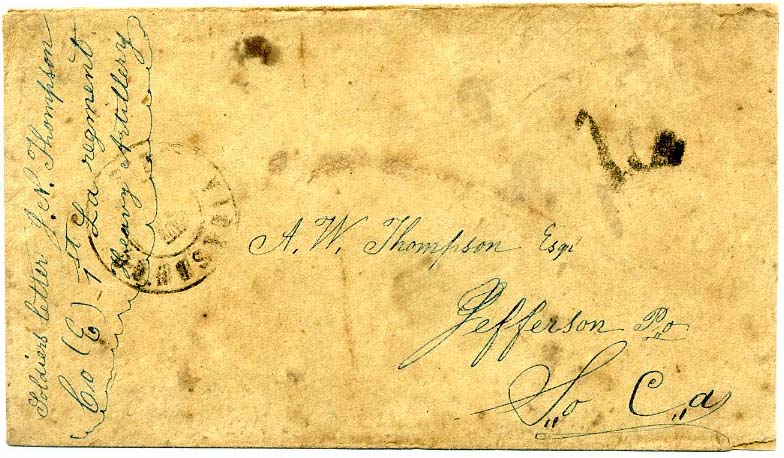 Soldiers letter J. N. Thompson
Co (E) 1st La regment
Heavy Artillery
A. W. Thompson Esqr
Jefferson Po
So Ca